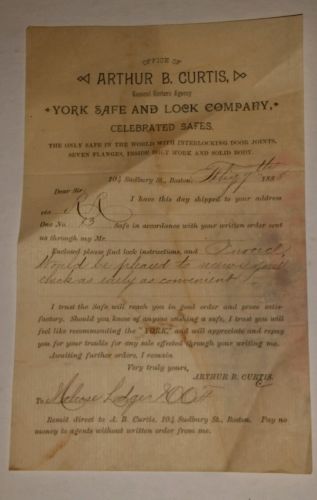 OFFICE OF
ARTHUR B. CURTIS,
General Eastern Agency
YORK SAFE AND LOCK COMPANY,
CELEBRATED SAFES.
THE ONLY SAFE IN THE WORLD WITH INTERLOCKING DOOR JOINTS,
SEVEN FLANGES, INSIDE BOLT WORK AND SOLID BODY.
10½ Sudbury St., Boston, 188
Dear Sir:
I have this day shipped to your address
via R R
One No. 13 Safe in accordance with your written order sent
us through my Mr.
Enclosed please find lock instructions, and Invoice
Would be pleased to receive your
check as early as convenient
I trust the Safe will reach you in good order and prove satis-
factory. Should you know of anyone wishing a safe, I trust you will
feel like recommending the "YORK," and will appreciate and repay
you for your trouble for any sale effected through your writing me.
Awaiting further orders, I remain
Very truly yours,
ARTHUR B. CURTIS.
To Melrose Lodge
Remit direct to A. B. Curtis, 10½ Sudbury St., Boston. Pay no
money to agents without written order from me.